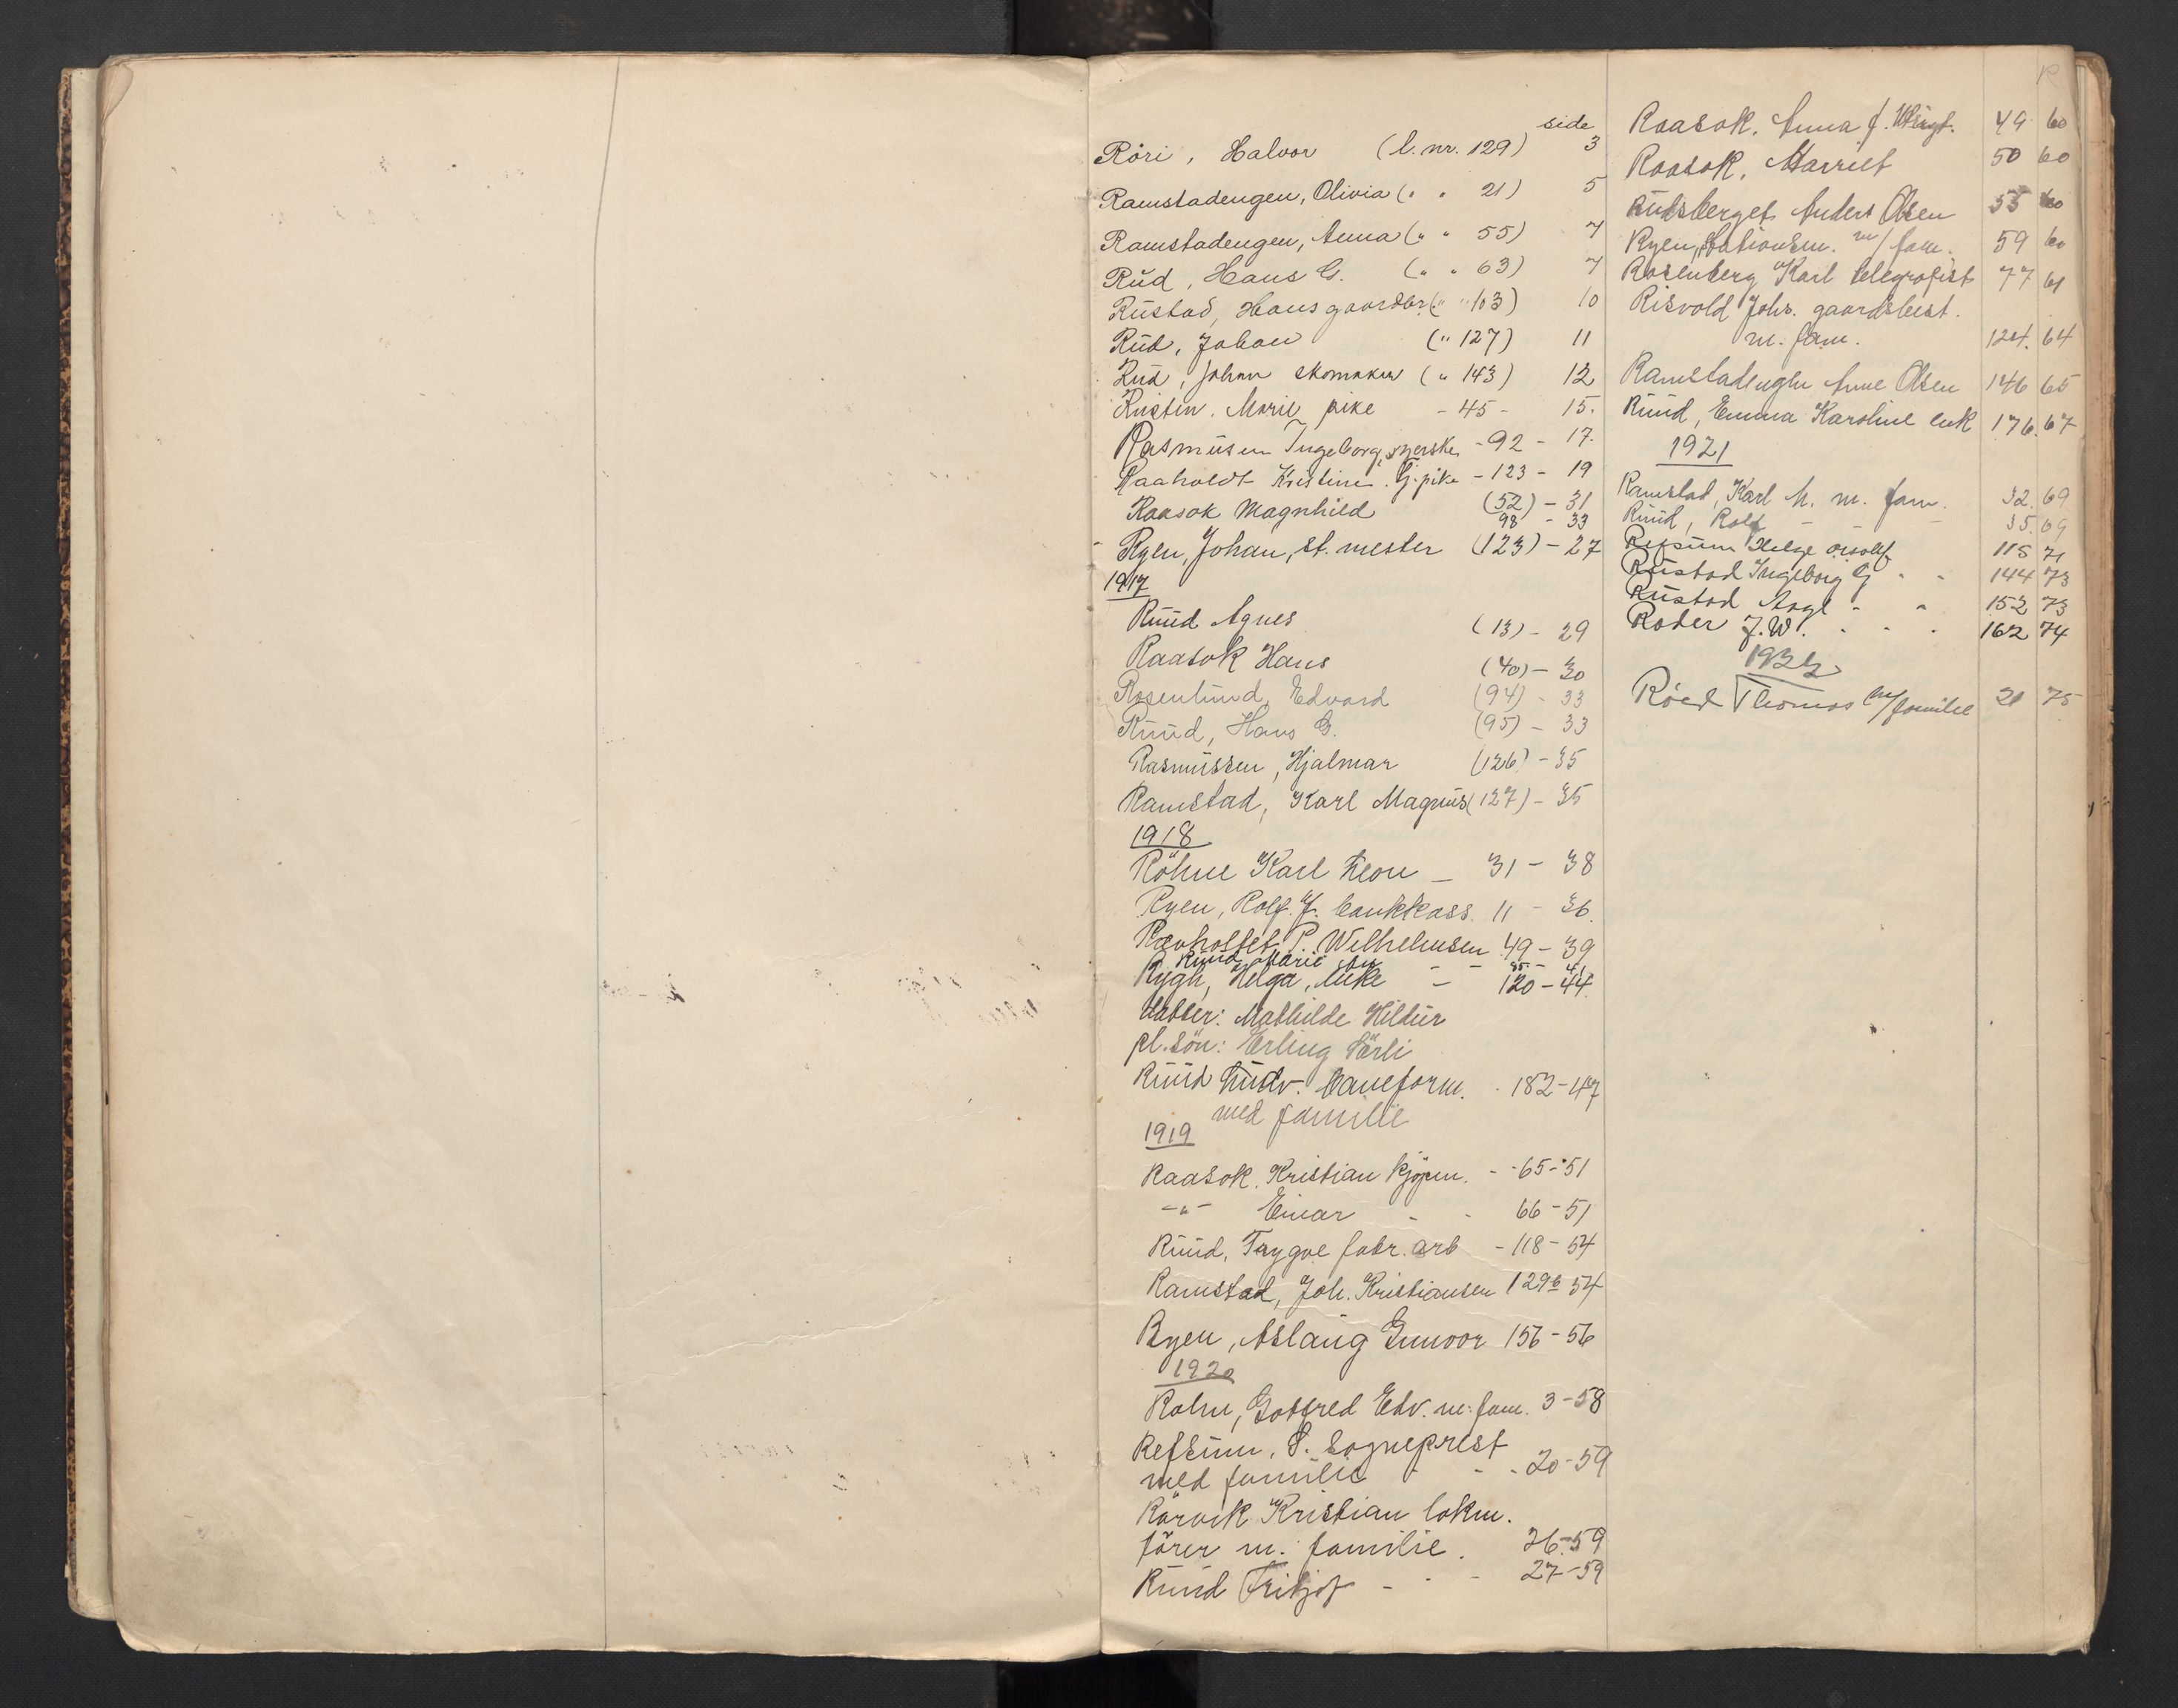 side
Röri, Halvor (l. nr. 129) 3
Ramstadengen, Olivia (" " 21) 5
Ramstadengen, Anna (" " 55) 7
Rud, Hans G. (" " 63) 7
Rustad, Hans gaardbr. (" " 103) 10
Rud, Johan (" 127) 11
Rud, Johan skomaker (" 143) 12
Marie pike - 45 - 15.
Rasmusen Ingeborg, syerske - 92 - 17.
Raaholdt Kristine. Tj. pike - 123 - 19
Raasok Magnhild (52) - 31
98 - 33
Ryen, Johan, st. mester (123) - 27
1917
Ruud Agnes (13) - 29
Raasok Hans (40) - 30
Rosenlund, Edvard (94) - 33
Ruud, Hans G. (95) - 33
Rasmussen, Hjalmar (126) - 35
Ramstad, Karl Magnus (127) - 35
1918
Röhne Karl Leon - 31 - 38
Ryen, Rolf. J. bankkass. 11 - 36.
Rævholtet P. Wilhelmsen 49 - 39
Ruud Marie fru - - 85 - 41
Rygh, Helga, enke - 120 - 44.
datter: Mathilde Hildur
pl. sön: Erling Sörli
Ruud Ludv. baneform. - 182 - 47
med familie
1919
Raasok. Kristian kjöpm. - - 65 - 51
- " - Einar - - 66 - 51
Ruud, Trygve fabr. arb - 118 - 54
Ramstad, Joh. Kristiansen 129b 54
Ryen, Aslaug Gunvor 156 - 56
1920
Rohn, Gotfred Edv. m. fam. 3 - 58
Refsum, S. Sogneprest
med familie - - - 20 - 59
Rörvik Kristian lokm.
förer m. familie. 26 - 59
Ruud Fritjof - - - 27 - 59
R
Raasok. Anna f. 49 60
Raasok. Harriet 50 60
Rudsberget Anders Olsen 55 60
Ryen, Stationsm. m/ fam. 59 60
Rosenberg Karl telegrafist 77 61
Risvold Johs. gaardsbest.
m. fam. 124. 64
Ramstadengen Anne Olsen 146 65
Ruud, Emma Karoline enk 176. 67
1921
Ramstad, Karl M. m. fam. 32. 69
Ruud, Rolf - - - 35. 69
Refsum Helge 115 71
Rustad Ingeborg G - - 144 73
Rustad Aage - - 152 73
Roder J. W. - - - 162 74
1922
Röed Thomas m/familie 21 75